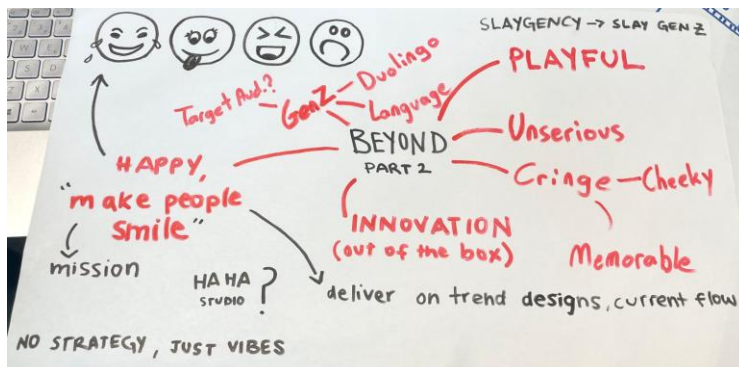 SLAYGENCY → SLAY GEN Z
PLAYFUL
Target Aud.?
GenZ
Duolingo
Language
BEYOND
PART 2
Unserious
Cringe
Cheeky
Memorable
HAPPY,
"make people
smile"
mission
INNOVATION
(out of the box)
HAHA
STUDIO
?
deliver on trend designs, current flow
NO STRATEGY, JUST VIBES